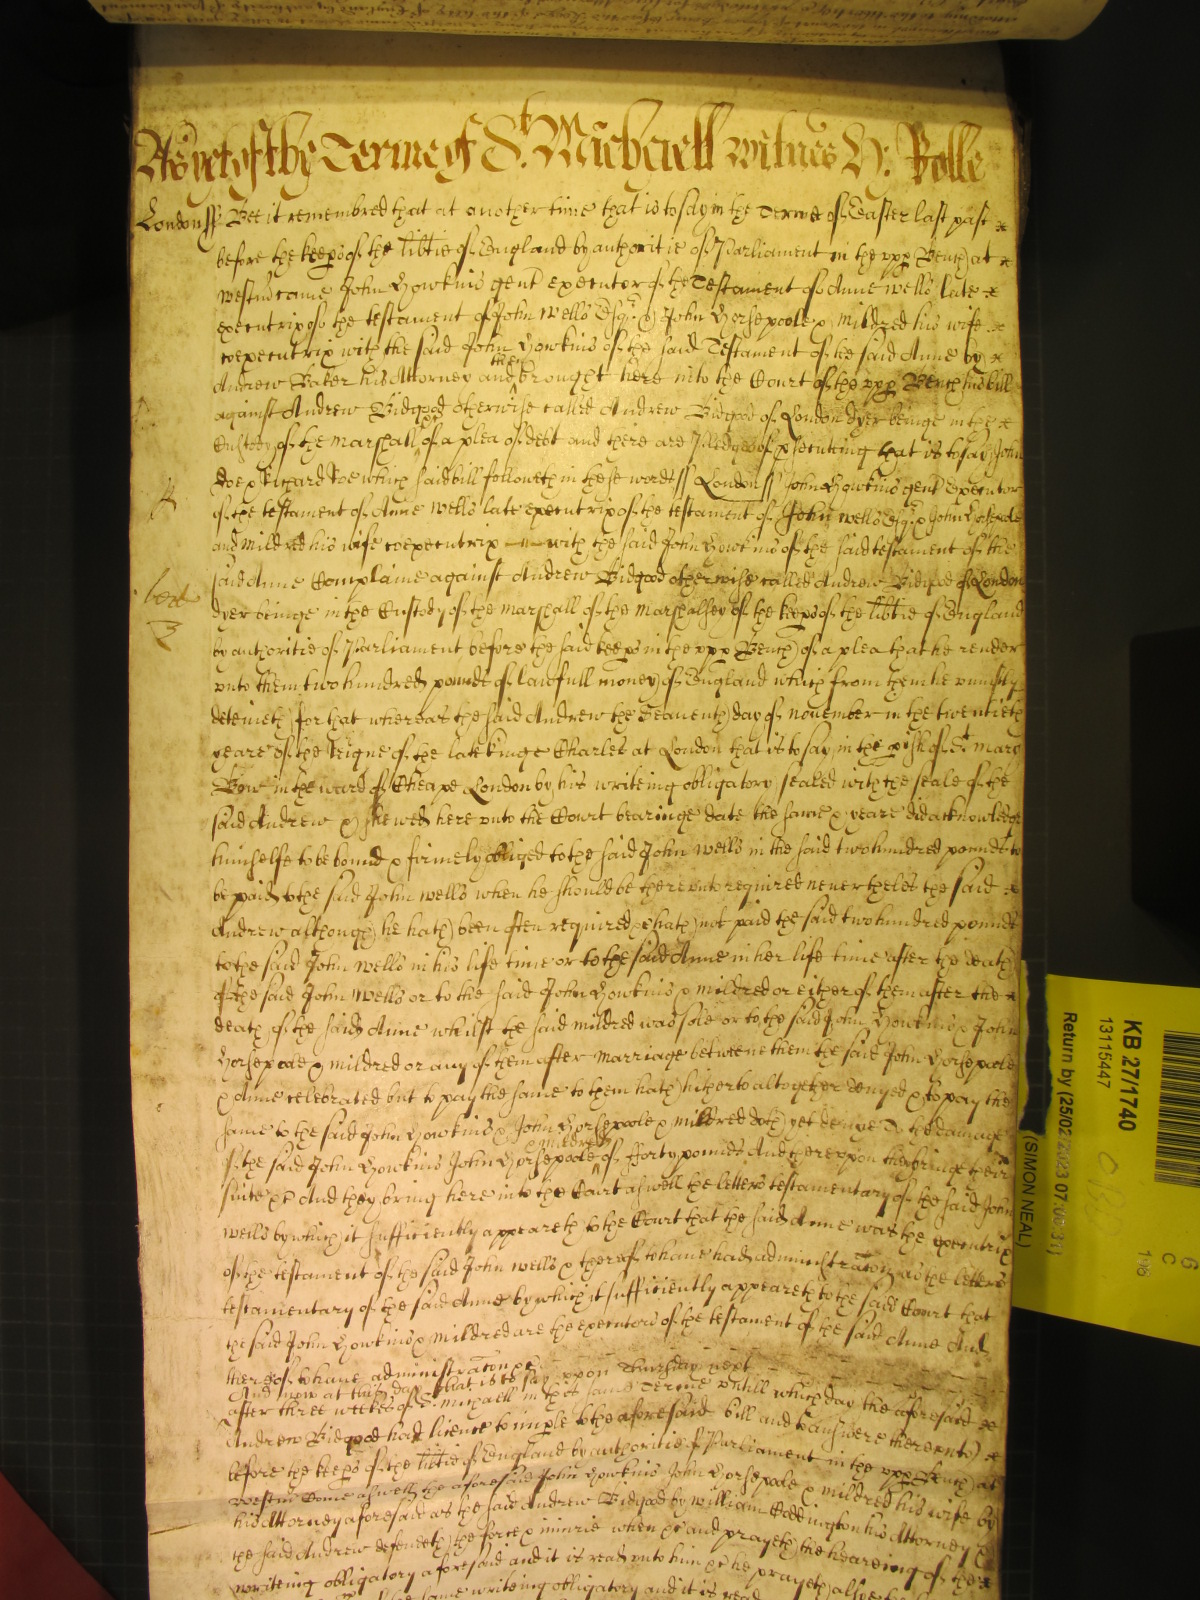 As yet of the Terme of St. Michaell witnes H: Rolle
London ss Bee it remembred that at another time that is to say in the Terme of Easter last past
before the keeps of the libtie of England by authoritie of Parliament in the upp Bench at
Westm came John Howkins gent executor of the Testament of Anne wells late
executrix of the testament of John wells Esqr. & John Horsepoole & mildred his wife
coexecutrix with the said John Howkins of the said Testament of the said Anne by
Andrew Baker his Attorney and then brought here into the Court of the upp Bench his bill
against Andrew Bidgood otherwise called Andrew Bidgood of London dyer beinge in the
Custody of the marshall &c of a plea of debt and there are Pledges of psecuting that is to say John
Doe & Richard Roe which said bill followeth in these words ss London ss John Howkins gent Executor
of the testament of Anne wells late executrix of the testament of John wells Esqr. & John Horsepoole
and mildred his wife coexecutrix with the said John Howkins of the said testament of the
said Anne Complaine against Andrew Bidgood otherwise called Andrew Bidgood of London
dyer beinge in the Custody of the marshall of the marshalsey of the keeps of the libtie of England
by authoritie of Parliament before the said keeps in the upp Bench of a plea that he render
unto them two hundred pounds of lawfull money of England which from them he uniustly
deteineth for that whereas the said Andrew the Seaventh day of november in the twentieth
yeare of the Reigne of the late kinge Charles at London that is to say in the pish of St mary
Bow in the ward of Cheape London by his writeing obligatory sealed with the seale of the
said Andrew & shewed here unto the Court bearinge date the same & yeare did acknowledge
himselfe to be bound & firmely obliged to the said John wells in the said two hundred pounds to
be paid to the said John wells when he should be thereunto required neverthelesse the said
Andrew although he hath been often required &c hath not paid the said two hundred pounds
to the said John wells in his life time or to the said Anne in her life time after the death
of the said John wells or to the said John Howkins & mildred or either of them after the
death of the said Anne whilst the said mildred was sole or to the said John Howkins & John
Horsepoole & mildred or any of them after marriage betweene them the said John Horsepoole
& Anne celebrated but to pay the same to them hath hitherto altogether denyed & to pay the
same to the said John Howkins & John Horsepoole & mildred doth yet denye To the damage
of the said John Howkins John Horsepoole & mildred of fforty pounds And thereupon they bringe their
suite &c And they bring here into the Court aswell the letters testamentary of the said John
wells by which it sufficiently appeareth to the Court that the said Anne was the executrix
of the testament of the said John wells & thereof to have had administracon as the letters
testamentary of the said Anne by which it sufficiently appeareth to the said Court that
the said John Howkins & mildred are the executors of the testament of the said Anne And
thereof to have administracon &c
And now at this day that is to say uppon Thursday next
after three weekes of St. michaell in this same Terme untill which day the aforesaid
Andrew Bidgood had licence to imple to the aforesaid bill and to answere thereunto
before the keeps of the libtie of England by authoritie of Parliament in the upp Bench at
Westm Come aswell the aforesaid John Howkins John Horsepoole & mildred his wife by
his Attorney aforesaid as the said Andrew Bidgood by William Eddington his Attorney &
the said Andrew defendeth the force & iniurie when &c and prayeth the heareing of the
writeing obligatory aforesaid and it is read unto him &c he prayeth alsoe the
the same writeing obligatory and it is read
KB 27/1740
13115447
Return by (25/02/2023 07:00:31)
(SIMON NEAL)
6
C
196